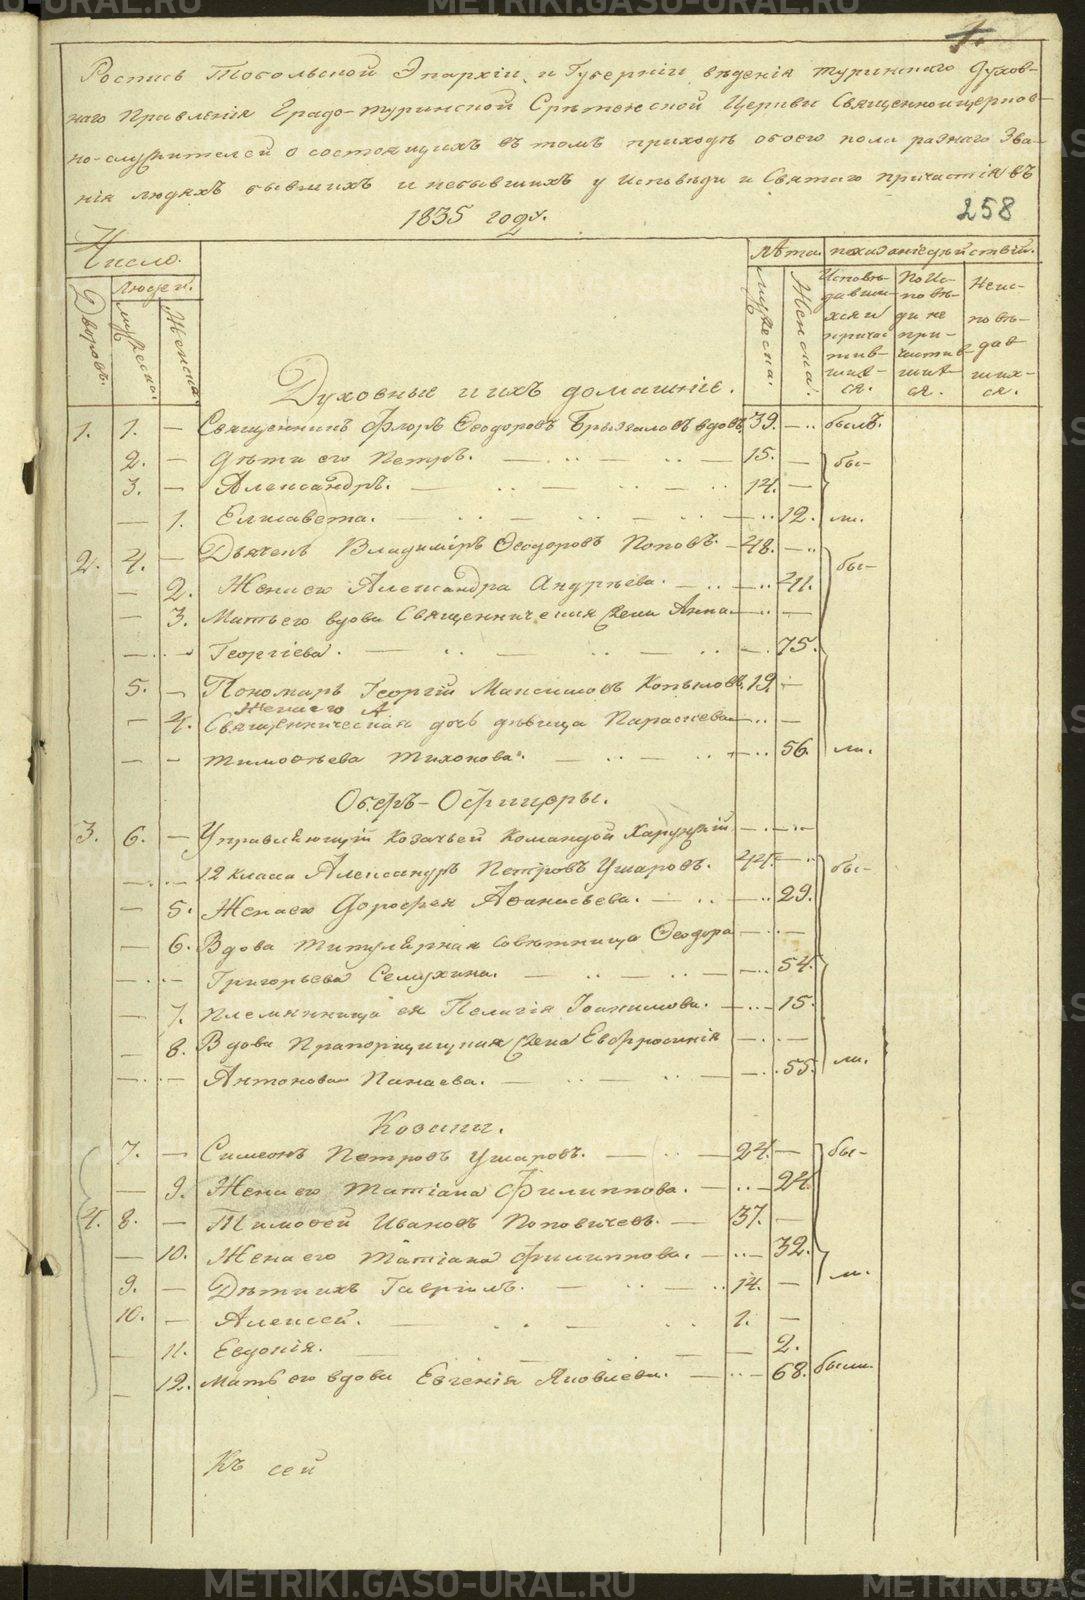 METRIKI.GASO-URAL.RU
1.
Роспись Тобольской Эпархіи и Губерніи вѣденія туринскаго Духов-
наго Правленія Градо-туринской Срѣтенской Церкви Священноицерков-
но-служителей о состоящихъ въ томъ приходѣ обоего пола разнаго Зва-
нія людяхъ бывшихъ и небывшихъ у исповѣди и Святаго причастія въ
1835 году.
258
Число.
Дворовъ.
Людей.
мужеска.
Женска.
Духовные и ихъ домашніе.
лѣта.
мужеска.
Женска.
показаніе дѣйствій.
Исповѣ-
давши-
хся и
причас
тив-
ших-
ся.
По Ис-
повѣ-
ди не
при-
частив-
ших-
ся.
Неис-
повѣ-
дав
ших-
ся.
1. 1. — Священникъ Флоръ Ѳеодоровъ вдовъ 39. — былъ.
2. — Дѣти его Петръ. 15. — бы-
3. — Александръ. 14. —
— 1. Елисавета. 12. ли.
2. 4. — Дьячекъ Владиміръ Ѳеодоровъ Поповъ. 48. — бы-
— 2. Жена его Александра Андрѣева. 41.
— 3. Мать его вдова Священническая Жена Анна
Георгіева. 75.
5. — Пономарь Георгій Максимовъ Копыловъ 19. —
Жена его А
— 4. Священническая дочь дѣвица Параскева
тимоѳѣева тихонова. 56. ли.
Оберъ-Офицеры.
3. 6. — Управляющій Козачьей Командой
12 класа Александръ Петровъ Ушаровъ. 44. — бы-
— 5. Жена его Дорофея Аѳанасьева. 29.
— 6. Вдова титулярная совѣтница Ѳеодора
Григорьева Семухина. 54.
— 7. племянница ея Пелагія Іоакимова. 15.
— 8. Вдова Прапорщицкая Жена Евфросинія
Антонова Панаева. 55. ли.
Козаки.
7. — Симеонъ Петровъ Ушаровъ. 24. — бы-
— 9. Жена его Татіана Филиппова. 24.
4. 8. — Тимоѳей Ивановъ Поповичевъ. 37. —
— 10. Жена его Татіана Филиппова. 32.
9. — Дѣти ихъ Гавріилъ. 14. — ли.
10. — Алексей. 1. —
— 11. Евдокія. 2.
— 12. Мать его вдова Евгенія Яковлева. 68. были.
Къ сей
METRIKI.GASO-URAL.RU